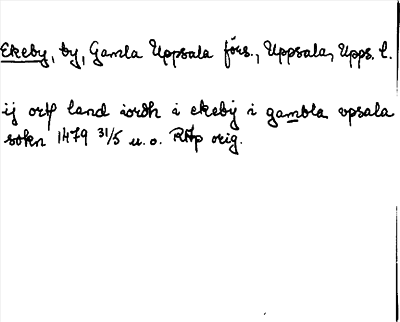 Ekeby, by, Gamla Uppsala förs., Uppsala, Upps. l.
ij ort land iordh i ekeby i gambla vpsala
sokn 1479 31/5 u. o. RAp orig.